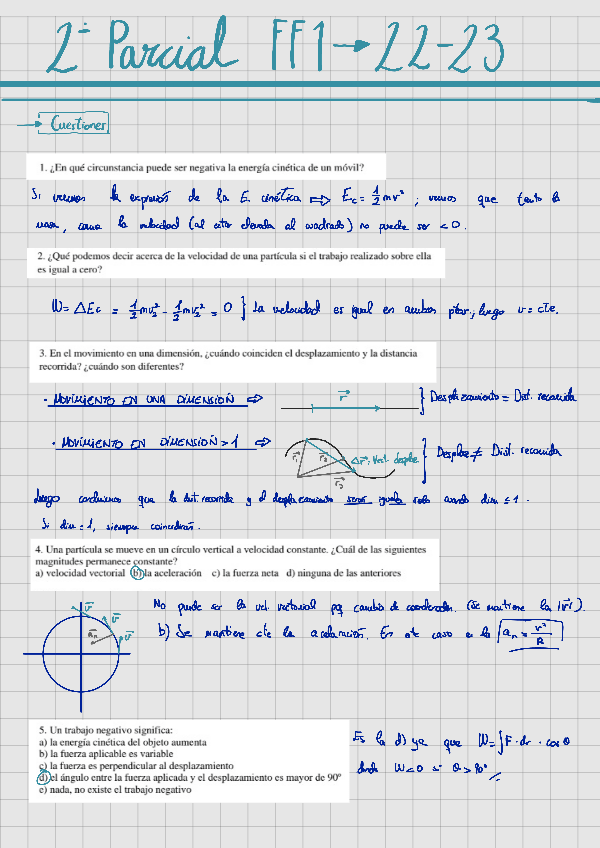 2º Parcial FF1 → 22-23
→ Cuestiones
1. ¿En qué circunstancia puede ser negativa la energía cinética de un móvil?
Si vemos la expresión de la E. cinética ⇒ Ec = 1/2 mv² ; vemos que tanto la
masa, como la velocidad (al estar elevada al cuadrado) no puede ser < 0.
2. ¿Qué podemos decir acerca de la velocidad de una partícula si el trabajo realizado sobre ella
es igual a cero?
W = ΔEc = 1/2 mv₂² - 1/2 mv₂² = 0 } La velocidad es igual en ambos ptos., luego v = cte.
3. En el movimiento en una dimensión, ¿cuándo coinciden el desplazamiento y la distancia
recorrida? ¿cuándo son diferentes?
· MOVIMIENTO EN UNA DIMENSIÓN ⇒ r⃗ } Desplazamiento = Dist. recorrida
· MOVIMIENTO EN DIMENSIÓN > 1 ⇒ r⃗₁ r⃗₂ r⃗₃ Δr⃗, Vect. despla } Despla ≠ Dist. recorrida
Luego concluimos que la dist. recorrida y el desplazamiento serán iguales solo cuando dim ≤ 1.
Si dim = 1, siempre coincidirán.
4. Una partícula se mueve en un círculo vertical a velocidad constante. ¿Cuál de las siguientes
magnitudes permanece constante?
a) velocidad vectorial b) la aceleración c) la fuerza neta d) ninguna de las anteriores
v⃗ v⃗ v⃗ a⃗n
No puede ser la vel. vectorial pq cambia de coordenadas. (Se mantiene la |v⃗|).
b) Se mantiene cte la aceleración. En este caso es la an = v²/R
5. Un trabajo negativo significa:
a) la energía cinética del objeto aumenta
b) la fuerza aplicable es variable
c) la fuerza es perpendicular al desplazamiento
d) el ángulo entre la fuerza aplicada y el desplazamiento es mayor de 90º
e) nada, no existe el trabajo negativo
Es la d) ya que W = ∫F · dr · cos θ
donde W < 0 si θ > 90º